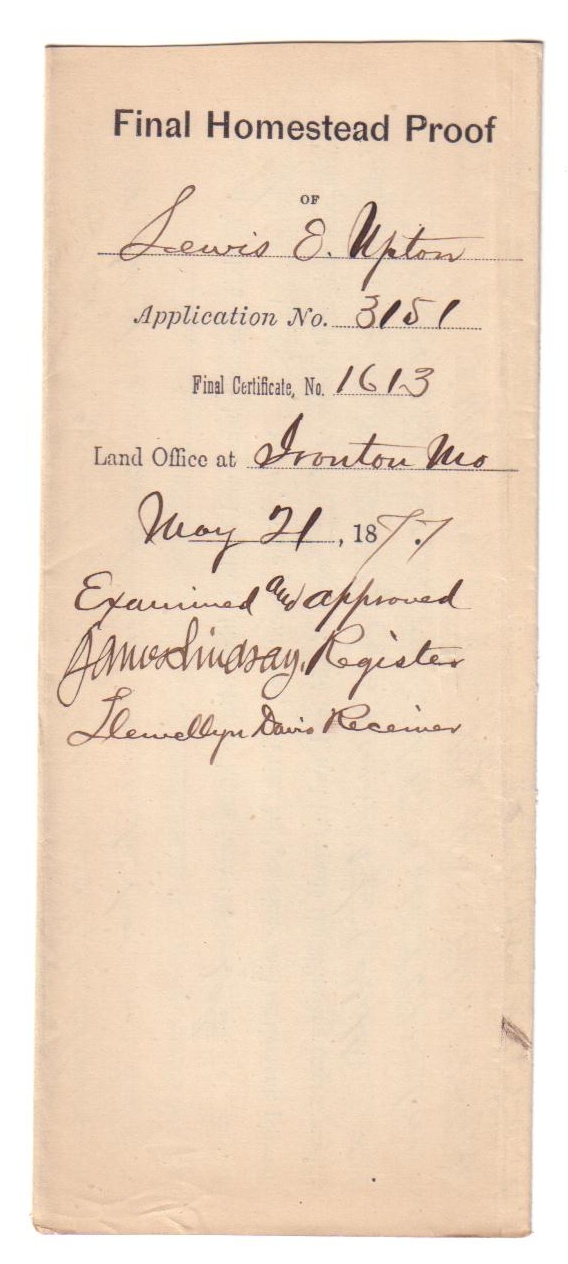 Final Homestead Proof
OF
Lewis E. Upton
Application No. 3151
Final Certificate, No. 1613
Land Office at Ironton Mo
May 21, 1877
Examined and approved
James Lindsay, Register
Llewellyn Davis Receiver